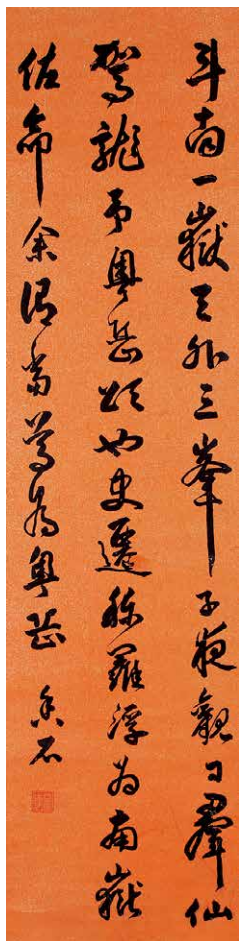 斗南一嶽天外三峯子夜觀日羣仙
駕龍予粵岳頌也史遷稱羅浮為南嶽
佐命余謂當尊為粵岳 香石